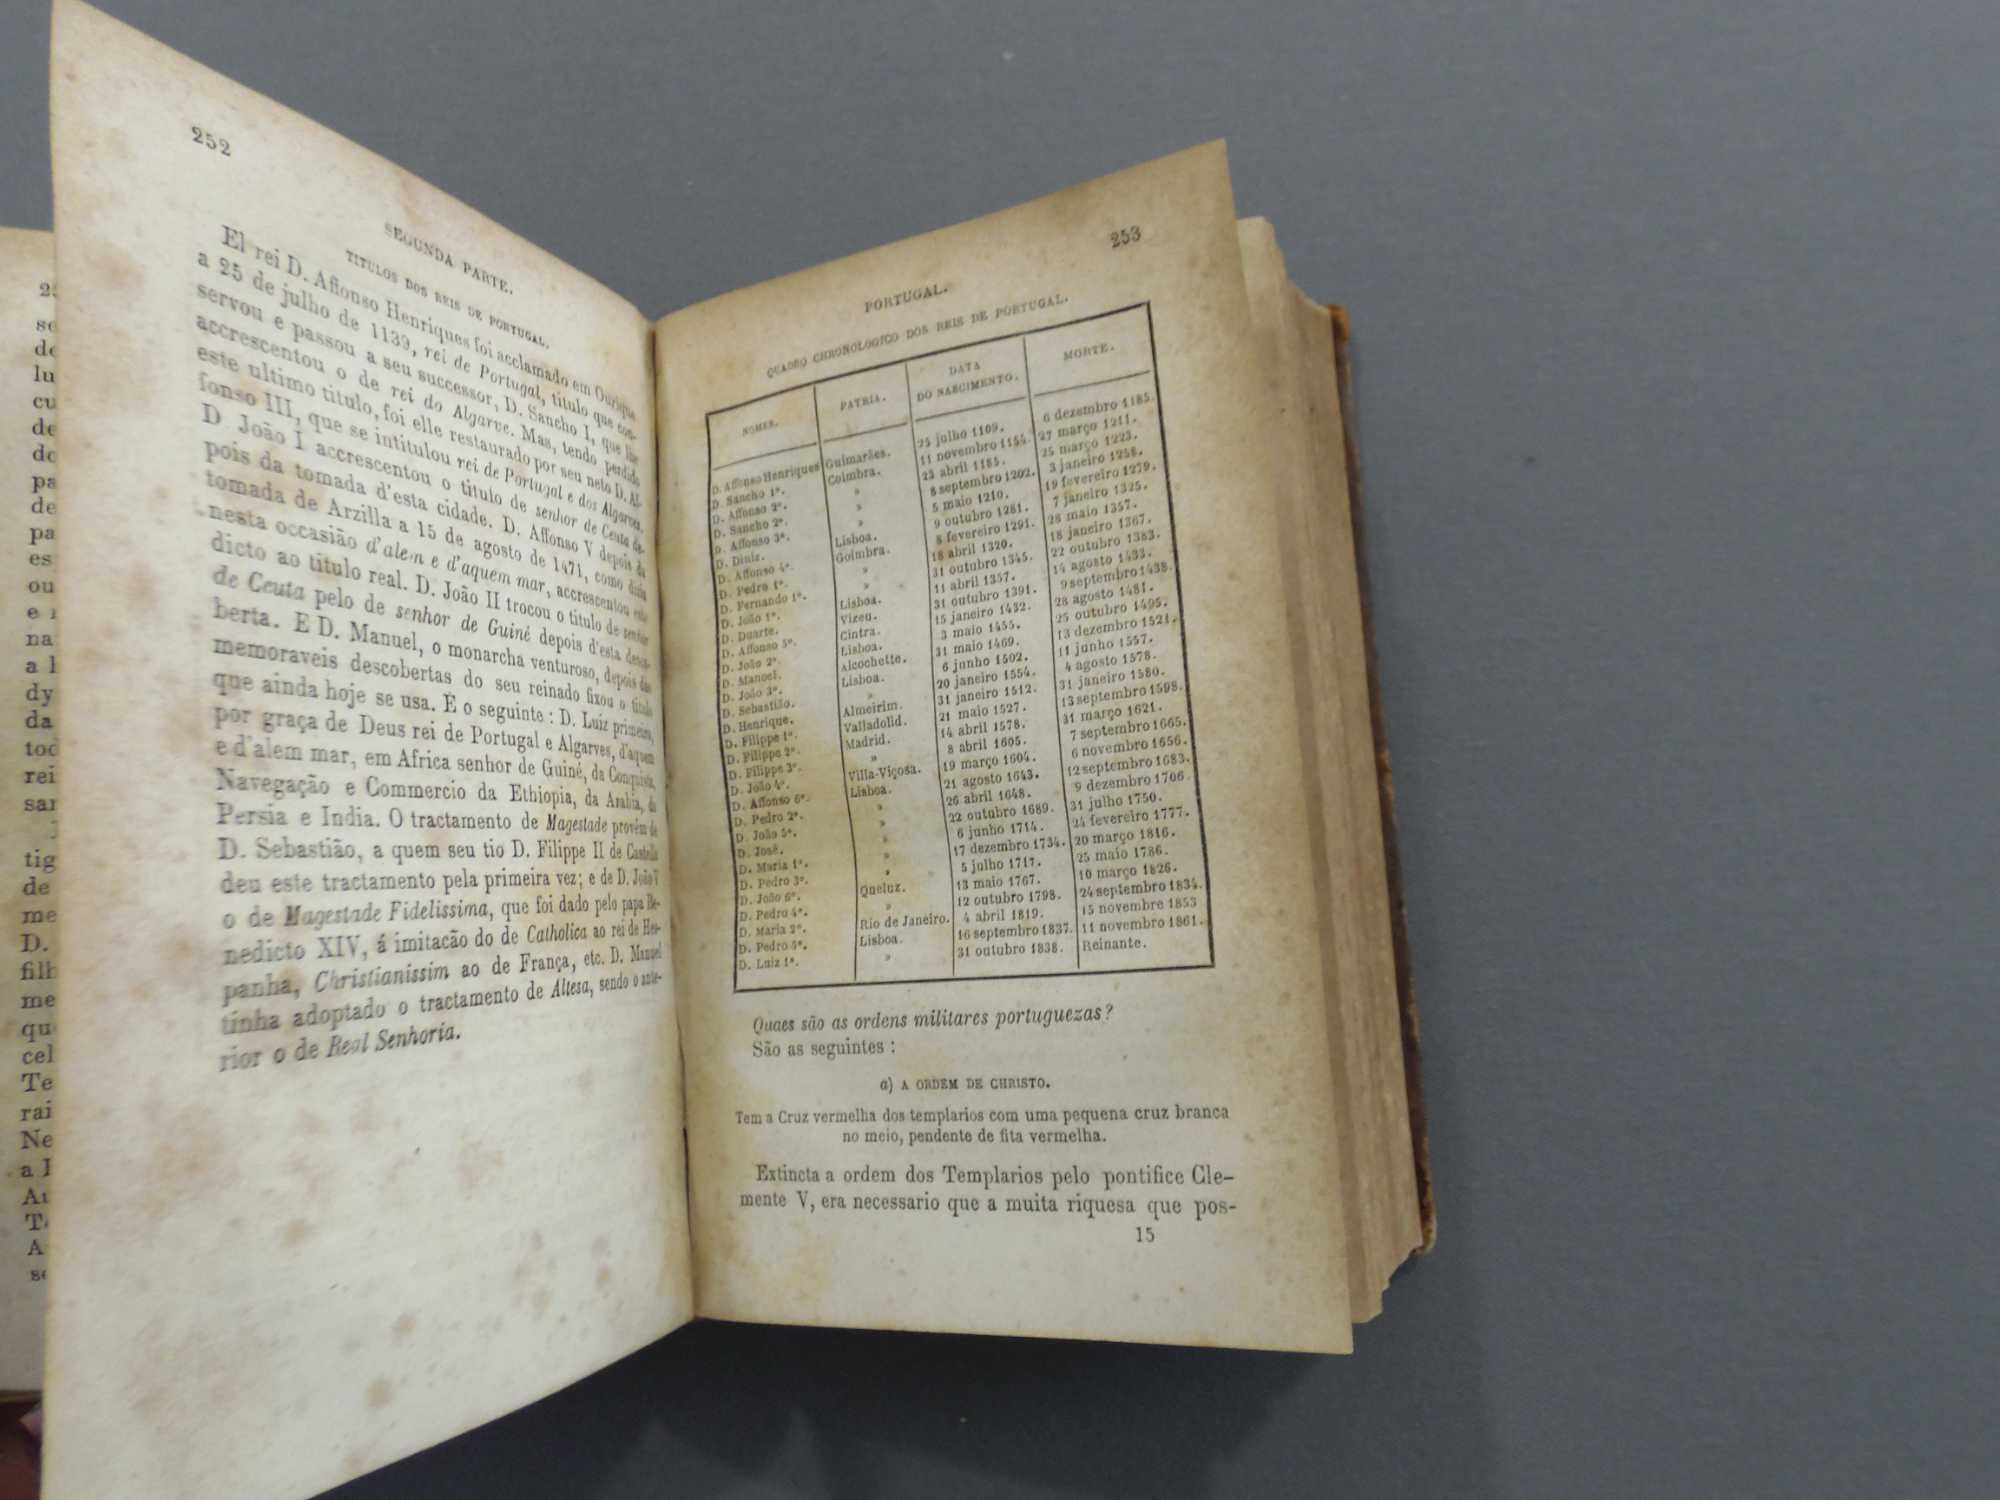 252
SEGUNDA PARTE.
TITULOS DOS REIS DE PORTUGAL.
El rei D. Affonso Henriques foi acclamado em Ourique
a 25 de julho de 1139, rei de Portugal, titulo que con-
servou e passou a seu successor, D. Sancho I, que lhe
accrescentou o de rei do Algarve. Mas, tendo perdido
este ultimo titulo, foi elle restaurado por seu neto D. Af-
fonso III, que se intitulou rei de Portugal e dos Algarves.
D João I accrescentou o titulo de senhor de Ceuta de-
pois da tomada d'esta cidade. D. Affonso V depois da
tomada de Arzilla a 15 de agosto de 1471, como dicta
nesta occasião d'alem e d'aquem mar, accrescentou este
dicto ao titulo real. D. João II trocou o titulo de senhor
de Ceuta pelo de senhor de Guiné depois d'esta desco-
berta. E D. Manuel, o monarcha venturoso, depois das
memoraveis descobertas do seu reinado fixou o titulo
que ainda hoje se usa. E o seguinte : D. Luiz primeiro,
por graça de Deus rei de Portugal e Algarves, d'aquem
e d'alem mar, em Africa senhor de Guiné, da Conquista,
Navegação e Commercio da Ethiopia, da Arabia, da
Persia e India. O tractamento de Magestade provém de
D. Sebastião, a quem seu tio D. Filippe II de Castella
deu este tractamento pela primeira vez; e de D. João V
o de Magestade Fidelissima, que foi dado pelo papa Be-
nedicto XIV, á imitacão do de Catholica ao rei de Hes-
panha, Christianissim ao de França, etc. D. Manuel
tinha adoptado o tractamento de Altesa, sendo o ante-
rior o de Real Senhoria.
253
PORTUGAL.
QUADRO CHRONOLOGICO DOS REIS DE PORTUGAL.
NOMES. PATRIA. DATA DO NASCIMENTO. MORTE.
D. Affonso Henriques Guimarães. 25 julho 1109. 6 dezembro 1185.
D. Sancho 1º. Coimbra. 11 novembro 1154. 27 março 1211.
D. Affonso 2º. » 23 abril 1185. 25 março 1223.
D. Sancho 2º. » 8 septembro 1202. 3 janeiro 1258.
D. Affonso 3º. » 5 maio 1210. 19 fevereiro 1279.
D. Diniz. Lisboa. 9 outubro 1281. 7 janeiro 1325.
D. Affonso 4º. Coimbra. 8 fevereiro 1291. 28 maio 1357.
D. Pedro 1º. » 18 abril 1320. 18 janeiro 1367.
D. Fernando 1º. » 31 outubro 1345. 22 outubro 1383.
D. João 1º. Lisboa. 11 abril 1357. 14 agosto 1433.
D. Duarte. Vizeu. 31 outubro 1391. 9 septembro 1438.
D. Affonso 5º. Cintra. 15 janeiro 1432. 28 agosto 1481.
D. João 2º. Lisboa. 3 maio 1455. 25 outubro 1495.
D. Manoel. Alcochette. 31 maio 1469. 13 dezembro 1521.
D. João 3º. Lisboa. 6 junho 1502. 11 junho 1557.
D. Sebastião. » 20 janeiro 1554. 4 agosto 1578.
D. Henrique. Almeirim. 31 janeiro 1512. 31 janeiro 1580.
D. Filippe 1º. Valladolid. 21 maio 1527. 13 septembro 1598.
D. Filippe 2º. Madrid. 14 abril 1578. 31 março 1621.
D. Filippe 3º. » 8 abril 1605. 7 septembro 1665.
D. João 4º. Villa-Viçosa. 19 março 1604. 6 novembro 1656.
D. Affonso 6º. Lisboa. 21 agosto 1643. 12 septembro 1683.
D. Pedro 2º. » 26 abril 1648. 9 dezembro 1706.
D. João 5º. » 22 outubro 1689. 31 julho 1750.
D. José. » 6 junho 1714. 24 fevereiro 1777.
D. Maria 1ª. » 17 dezembro 1734. 20 março 1816.
D. Pedro 3º. » 5 julho 1717. 25 maio 1786.
D. João 6º. » 13 maio 1767. 10 março 1826.
D. Pedro 4º. Queluz. 12 outubro 1798. 24 septembro 1834.
D. Maria 2ª. Rio de Janeiro. 4 abril 1819. 15 novembre 1853
D. Pedro 5º. Lisboa. 16 septembro 1837. 11 novembro 1861.
D. Luiz 1º. » 31 outubro 1838. Reinante.
Quaes são as ordens militares portuguezas?
São as seguintes :
a) A ORDEM DE CHRISTO.
Tem a Cruz vermelha dos templarios com uma pequena cruz branca
no meio, pendente de fita vermelha.
Extincta a ordem dos Templarios pelo pontifice Cle-
mente V, era necessario que a muita riquesa que pos-
15